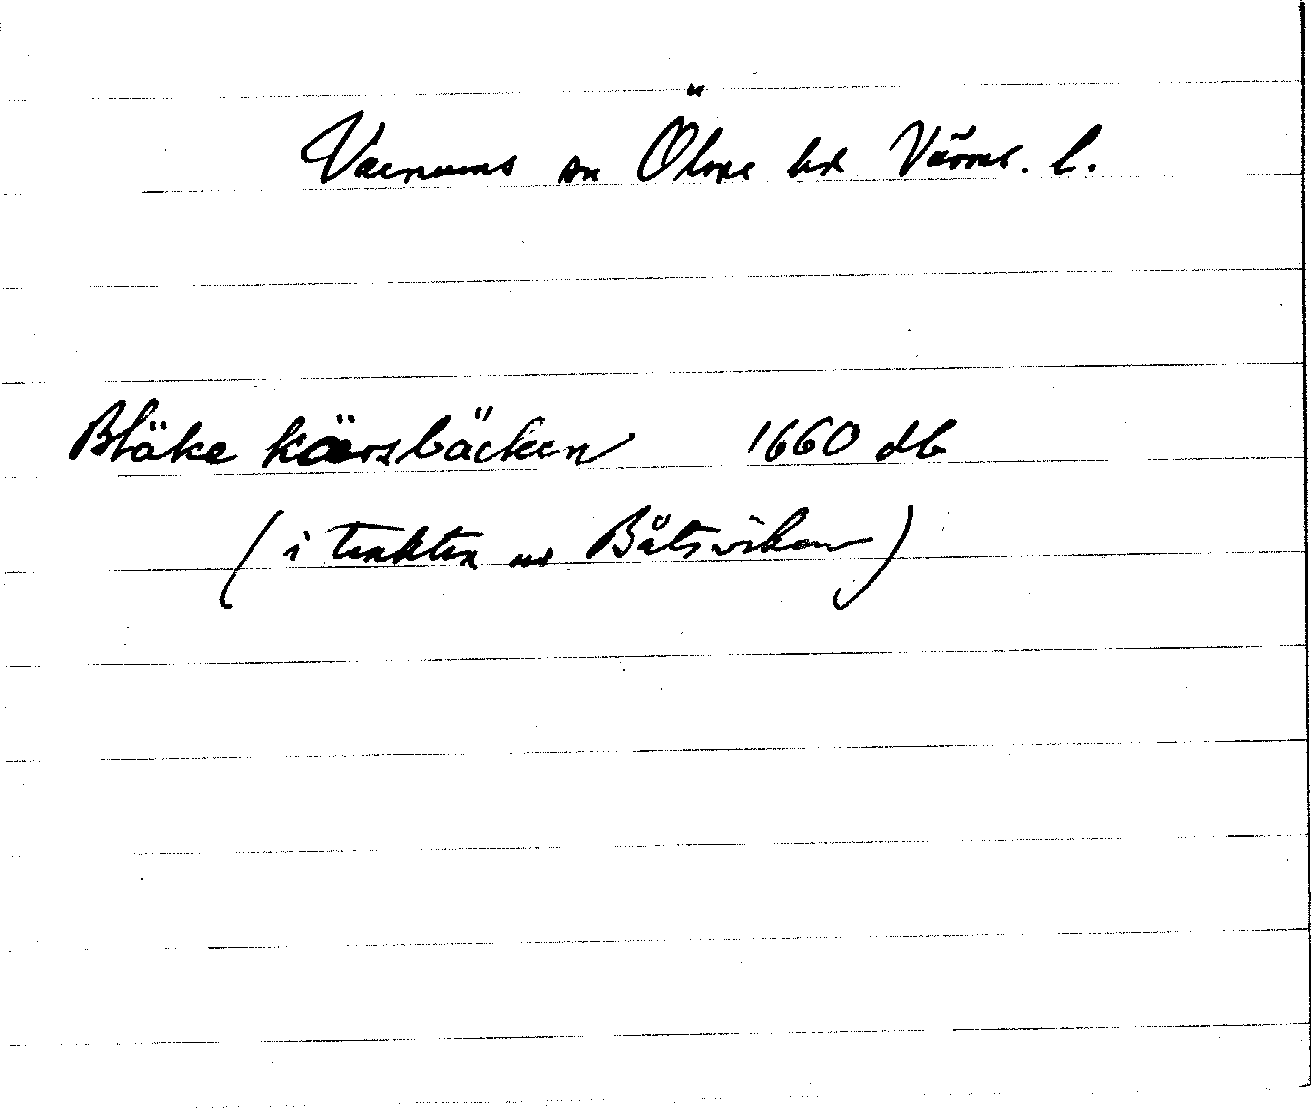 Varnums sn Ölme hd Värml. l.
Bläke kärsbäcken 1660 db
(i trakten av Båtsviken)